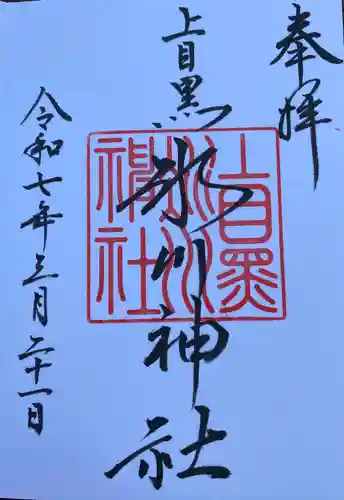 奉拝
上目黒
氷川神社
上目黒
氷川
神社
令和七年三月二十一日